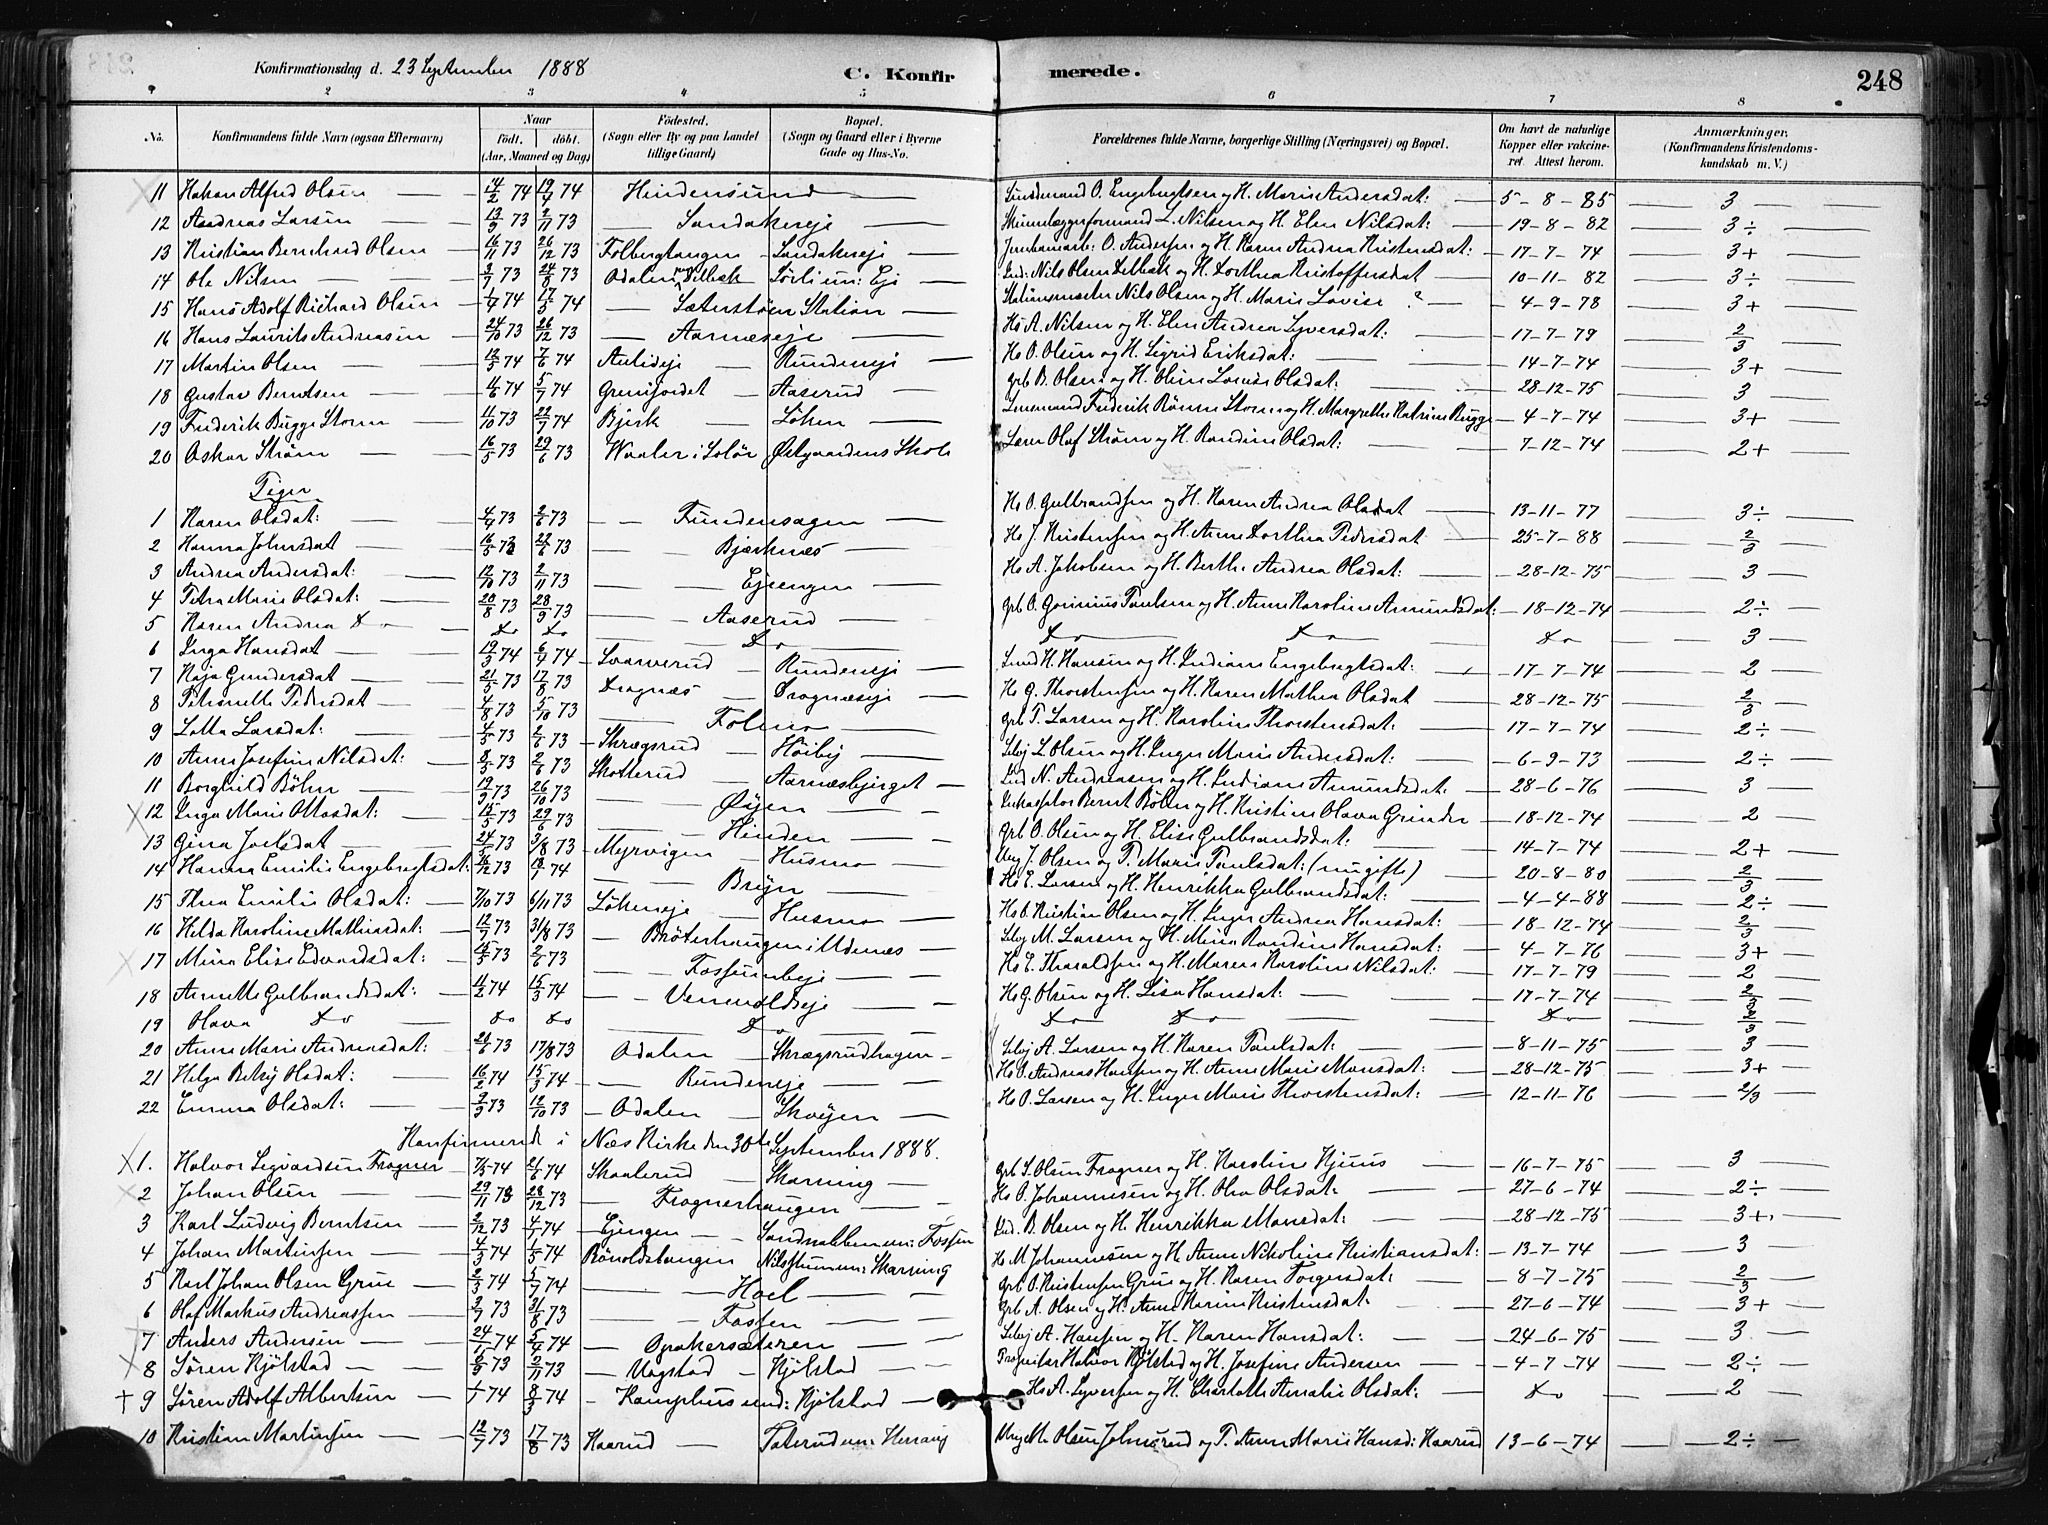 Konfirmationsdag d. 23 September 1888 C. Konfirmerede. 248
1 2 3 4 5 6 7 8
No. Konfirmandens fulde Navn (ogsaa Efternavn) Naar født. døbt. (Aar, Maaned og Dag) Fødested. (Sogn eller By og paa Landet tillige Gaard) Bopæl. (Sogn og Gaard eller i Byerne Gade og Hus-No. Forældrenes fulde Navne, borgerlige Stilling (Næringsvei) og Bopæl. Om havt de naturlige Kopper eller vakcineret. Attest herom. Anmærkninger. (Konfirmandens Kristendomskundskab m. V.)
11 Hakan Alfred Olsen — 14/2 74 19/4 74 Hindensund — O. Engebregtsen og H. Marie Andersdat: — 5-8-85 — 3 —
12 Andreas Larsen — 13/9 73 2/11 73 — Sandakereje — L. Nilsen og H. Elen Nilsdat: — 19-8-82 — 3÷
13 Kristian Bernhard Olsen 16/11 73 26/12 73 Folbergtangen — Sandakereje O. Andersen og H. Karen Andrea Kristensdat: — 17-7-74 — 3+
14 Ole Nilsen — 3/7 73 24/8 73 Odalen Delbæk Sørli un: Eje — Nils Olsen Delbæk og H. Dorthea Kristoffersdat — 10-11-82 — 3÷
15 Hans Adolf Richard Olsen 1/4 74 17/5 74 — Sæterstøen Station — Stationsmester Nils Olsen og H. Marie Lovise ? — 4-9-78 — 3+
16 Hans Laurits Andreasen — 24/10 73 26/12 73 — Aarnæseje — Hs A. Nilsen og H. Elen Andrea Syversdat: — 17-7-79 — 2/3
17 Martin Olsen — 12/5 74 7/6 74 Aulieje — Rundereje Hs O. Olsen og H. Sigrid Eriksdat: — 14-7-74 — 3+
18 Gustav Berntsen — 11/6 74 5/7 74 Grenijordet — Aaserud grb B. Olsen og H. Oline Lovise Olsdat: — 28-12-75 — 3
19 Frederik Bugge Storm — 11/10 73 22/7 74 Bjerk — Løken — Lensmand Frederik Rønne Storm og H. Margrethe Katrine Bugge — 4-7-74 — 3+
20 Oskar Strøm — 16/5 73 29/6 73 Waaler i Solør Østgaardens Skole Lærer Olaf Strøm og H. Randine Olsdat: — 7-12-74 — 2+
Piger
1 Karen Olsdat: — 4/4 73 2/6 73 — Fundensagen — Hs O. Gulbrandsen og H. Karen Andrea Olsdat — 13-11-77 — 3÷
2 Hanna Johnsdat — 16/5 73 22/6 73 — Bjærknæs — Hs J. Kristensen og H. Anne Dorthea Pedersdat — 25-7-88 — 2/3
3 Andrea Andersdat: — 12/10 73 2/11 73 — Ejsengen — Hs A. Jakobsen og H. Berthe Andrea Olsdat: — 28-12-75 — 3
4 Petra Marie Olsdat: — 20/8 73 28/9 73 — Aaserud — grb O. Gorinius Paulsen og H. Anne Karoline Amundsdat: — 18-12-74 — 2÷
5 Karen Andrea Do — Do Do — Do — Do — Do — Do — 3
6 Inga Hansdat — 19/3 74 6/4 74 — Svarverud — Rundereje H. Hansen og H. Indiane Engebregtsdat: — 17-7-74 — 2
7 Kaja Gundersdat — 21/5 73 17/8 73 — Dragnæs — Dragnæseje Hs G. Thorstensen og H. Karen Mathea Olsdat — 28-12-75 — 2/3
8 Petronelle Pedersdat — 4/8 73 5/10 73 — Folmo — grb P. Larsen og H. Karoline Thorstensdat: — 17-7-74 — 2÷
9 Lotta Larsdat: — 4/5 73 2/6 73 — Skrægsrud — Høiby — Selvej L. Olsen og H. Inger Marie Andersdat: — 6-9-73 — 2÷
10 Anne Josefine Nilsdat: — 8/5 73 2/6 73 Skotterud — Aarnæsbjerget — N. Andreasen og H. Indiane Amundsdat: — 28-6-76 — 3
11 Borghild Böhn — 19/9 73 26/10 73 — Øijen — Bernt Böhn og H. Kristine Olava Grinder — 18-12-74 — 2
12 Inga Marie Olsdat: — 15/5 73 29/6 73 — Hinden — grb O. Olsen og H. Elise Gulbrandsdat: — 14-7-74 — 2+
13 Gina Joelsdat — 24/5 73 3/8 73 — Myrvigen — Husmo — Ung J. Olsen og P. Marie Paulsdat: (nu gifte) — 20-8-80 — 2/3
14 Hanna Emilie Engebregtsdat: 26/12 73 18/1 74 — Bryn — Hs E. Larsen og H. Henrikka Gulbrandsdat: — 4-4-88 — 2÷
15 Thea Emilie Olsdat: — 7/10 73 6/11 73 Løkeneje — Husmo — Hs O. Kristian Olsen og H. Inger Andrea Hansdat: — 18-12-74 — 2/3
16 Hilda Karoline Mathiasdat: 12/7 73 31/8 73 — Brøterhaugen i Udenæs — Selvej M. Larsen og H. Mina Randine Hansdat: — 4-7-76 — 3+
17 Mina Elise Edvardsdat: — 15/5 73 2/6 73 — Fossumbeje — Hs E. Tharaldsen og H. Maren Karoline Nilsdat: — 17-7-79 — 2
18 Annette Gulbrandsdat: — 11/2 74 15/3 74 — Vennoldseje — Hs G. Olsen og H. Lisa Hansdat: — 17-7-74 — 2/3
19 Olava Do — Do Do — Do — Do — Do — Do — 2/3
20 Anne Marie Andreasdat: — 20/6 73 17/8 73 — Odalen — Skrægsrudhagen — Selvej A. Larsen og H. Karen Paulsdat: — 8-11-75 — 3
21 Helga Betsy Olsdat: — 16/2 74 15/3 74 — Rundereje — Hs O. Andreas Hansen og H. Anne Marie Monsdat: — 28-12-75 — 3+
22 Emma Olsdat: — 2/9 73 12/10 73 — Odalen — Skøyen — Hs O. Larsen og H. Inger Marie Thorstensdat: — 12-11-76 — 2/3
Konfirmerede i Næs Kirke den 30te September 1888.
1. Halvor Sigvardsen Fragner — 7/5 74 21/6 74 Skaalerud — Skarning — grb S. Olsen Fragner og H. Karoline Kjuus — 16-7-75 — 3
2 Johan Olsen — 29/11 73 28/12 73 — Fragnerhaugen — Hs O. Johannesen og H. Olea Olsdat: — 27-6-74 — 2÷
3 Karl Ludvig Berntsen — 2/12 73 4/1 74 — Ejingen — Sandnabben un: Fossen B. Olsen og H. Henrikka Monsdat: — 28-12-75 — 3+
4 Johan Martinsen — 4/3 74 1/5 74 Rønoldstangen Nilsstuen un: Skarning Hs M Johannesen og H Anne Nikoline Kristiansdat: — 13-7-74 — 3
5 Karl Johan Olsen Grue — 2/3 74 5/7 74 — Hoel — grb O. Kristensen Grue og H. Karen Torgersdat: — 8-7-75 — 2/3
6 Olaf Markus Andreassen — 2/7 73 31/8 73 — Fossen — grb A. Olsen og H. Anne Karine Kristensdat: — 27-6-74 — 3+
7 Anders Andersen — 24/1 74 5/4 74 — Opakersæteren — Selvej A. Hansen og H. Karen Hansdat: — 24-6-75 — 3
8 Søren Kjølstad — 6/9 73 2/11 73 — Vagstad — Kjølstad — Halvor Kjølstad og H. Josefine Andersen — 4-7-74 — 2÷
† 9 Søren Adolf Albertsen — 1/1 74 8/3 74 — Kamphus und: Kjølstad — Hs A. Syversen og H. Charlotte Amalie Olsdat: — Do — 2
10 Kristian Martinsen — 12/7 73 17/8 73 Haarud — Taterud un: Herraug Ung M. Olsen Johnsrud og P. Anne Marie Hansd: Haarud 13-6-74 — 2÷ —